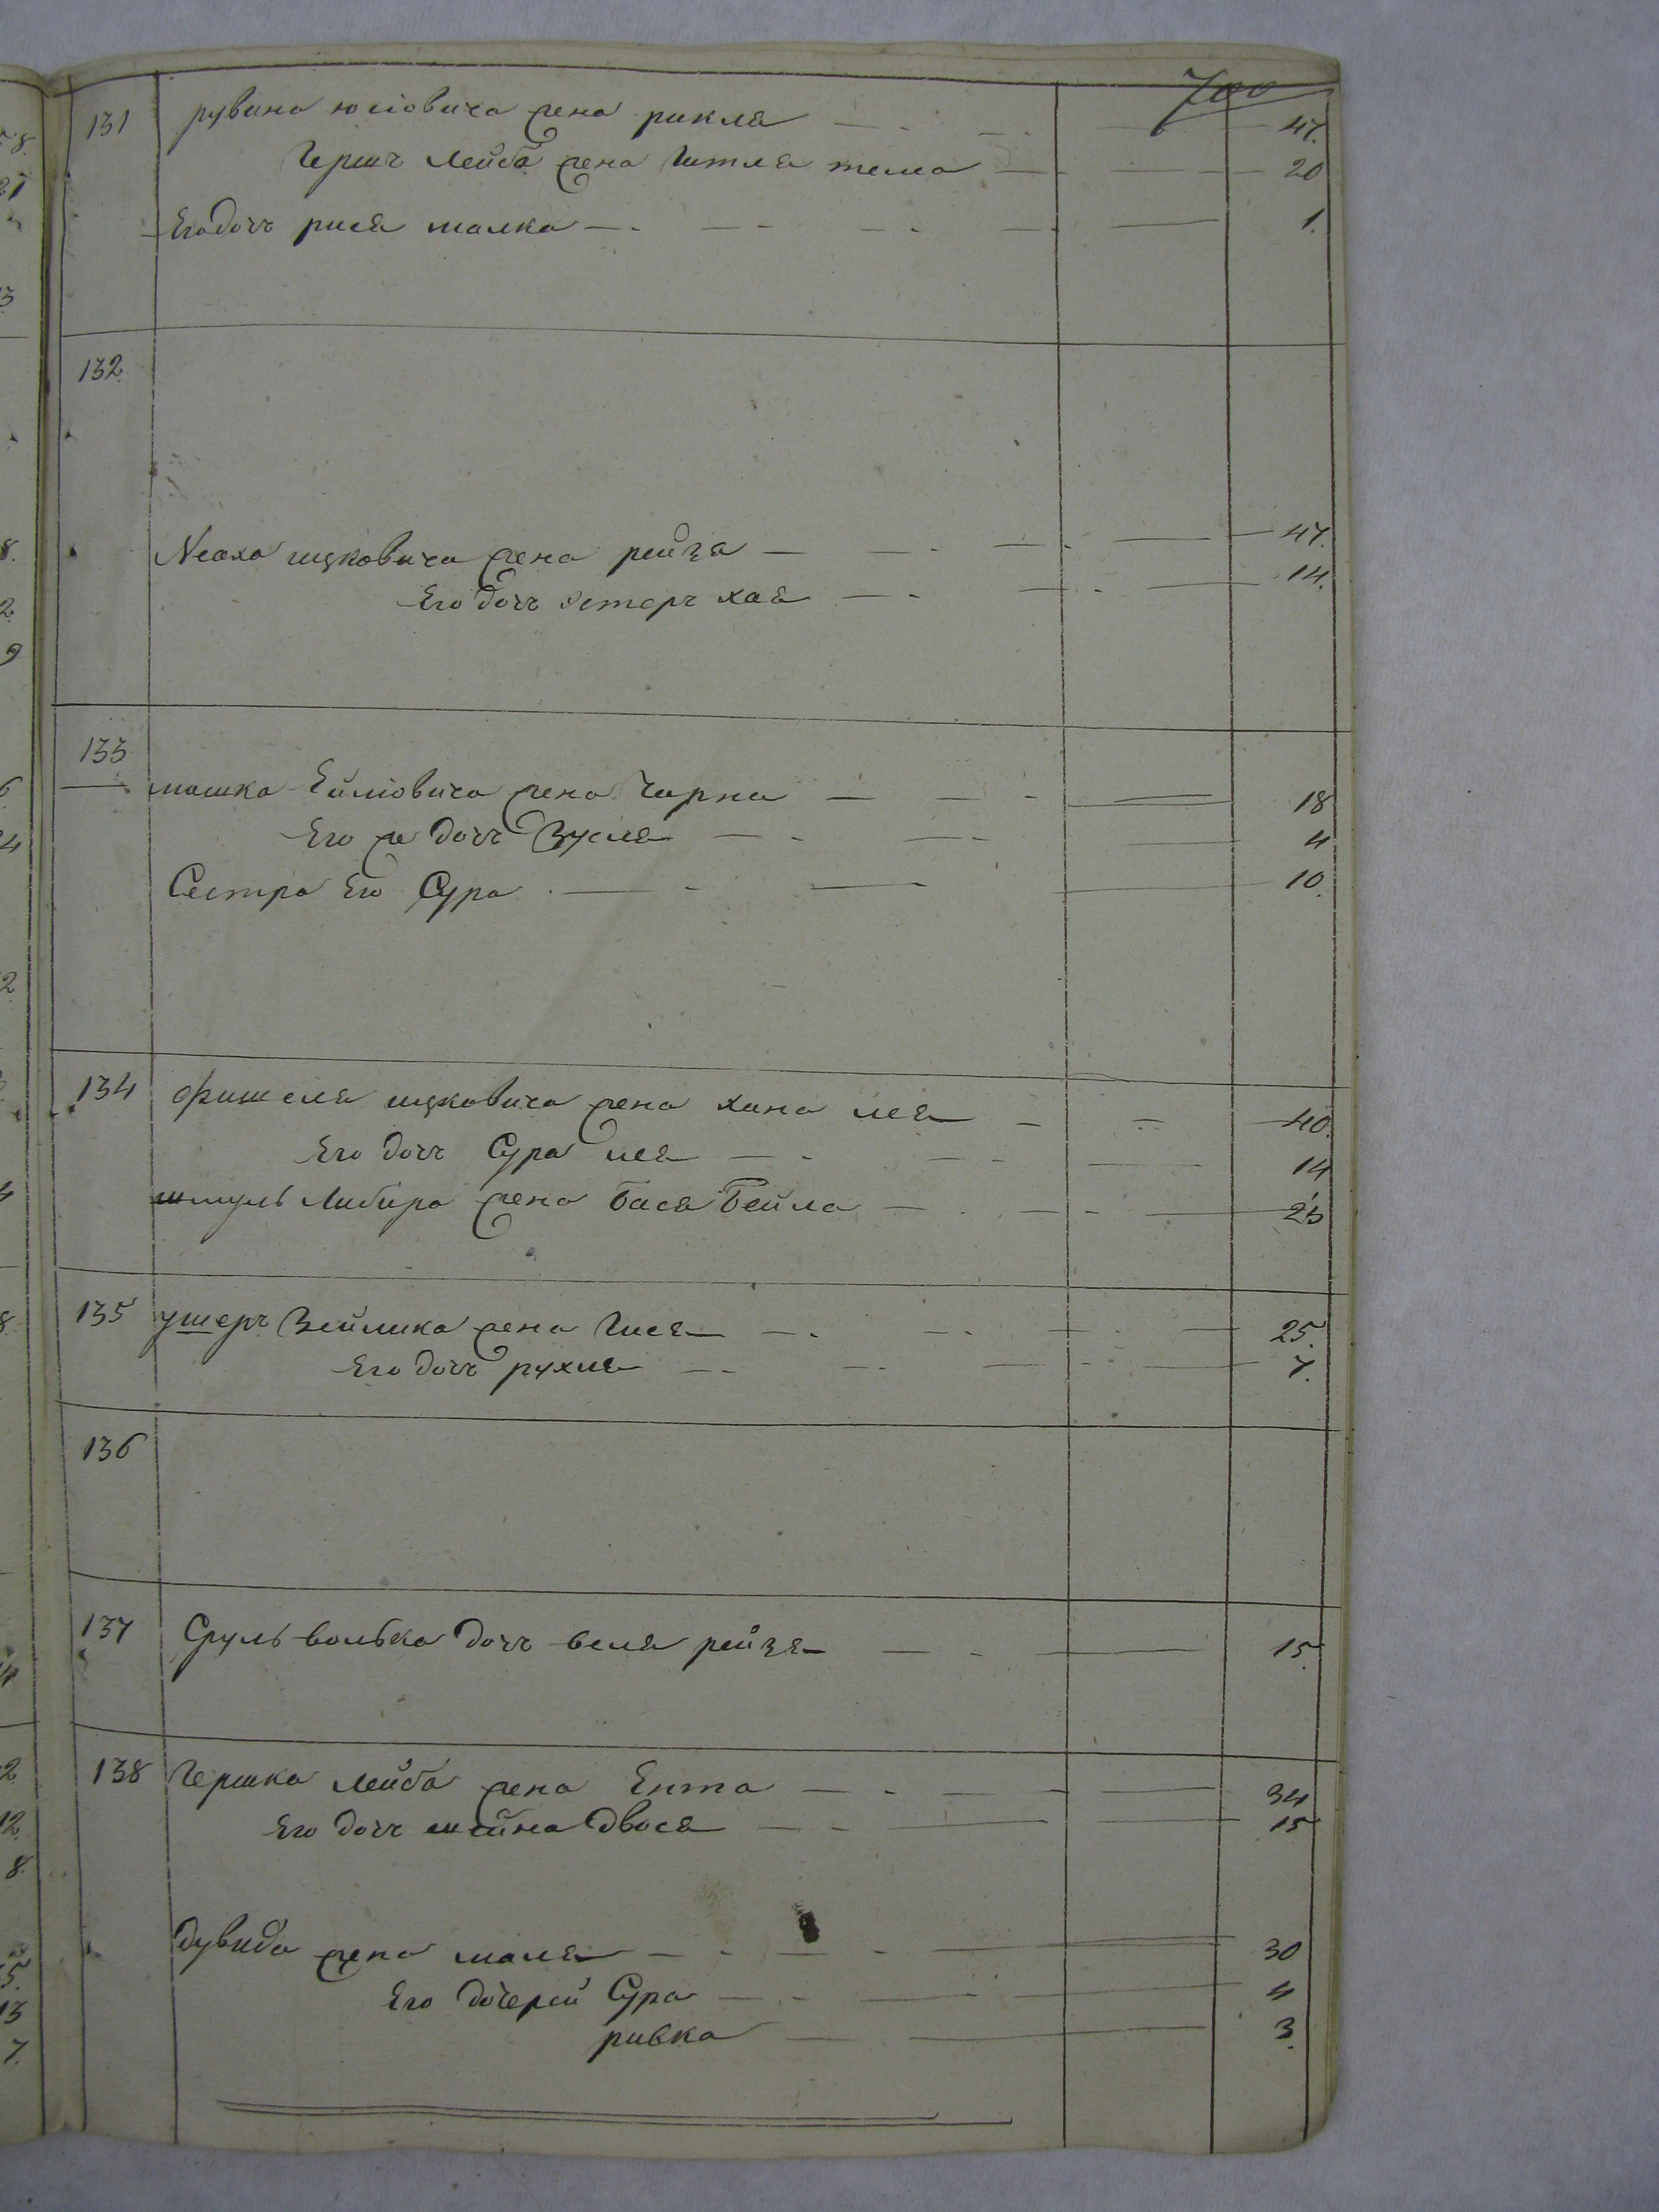 700
131 рувина юсiовича жена рикля — 47.
Гершъ Лейба жена Гитля тема — 20
Его дочъ рися малка — 1.
132.
Неаха ицковича жена рейзя — 47.
Его дочъ эстеръ хая — 14.
133
мошка Еймовича жена Чарна — 18
Его же дочъ Зусля — 4
Сестра Его Сура — 10.
134 Фишеля ицковича жена хана лея — 40.
Его дочъ Сура лея — 14
шмуль Либира жена Бася Бейла — 25
135 ушеръ Зейлика жена Гися — 25.
Его дочъ рухля — 7.
136
137 Сруль волька дочъ веля рейзя — 15.
138 Гершка Лейба жена Ента — 34
Его дочъ шейна двося — 15
дувида жена маля — 30
Его дочерей Сура — 4
ривка — 3.